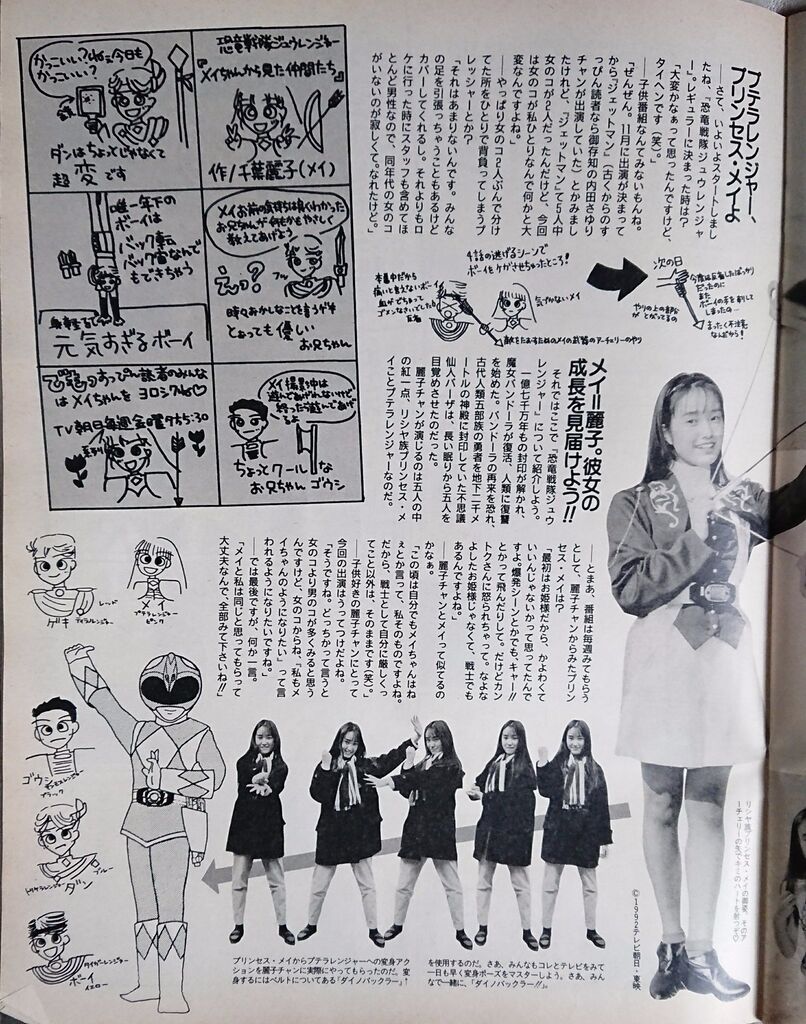 プテラレンジャー、
プリンセス・メイよ
――さて、いよいよスタートしまし
たね、「恐竜戦隊 ジュウレンジャ
ー」。レギュラーに決まった時は?
「大変かなぁって思ったんですけど、
タイヘンです(笑)」
――子供番組なんてみないもんね。
「ぜんぜん。11月に出演が決まって
から『ジェットマン』(古くからのす
っぴん読者なら御存知の内田さゆり
チャンが出演していた)とかみまし
たけれど、『ジェットマン』て5人中
女のコが2人だったんだけど、今回
は女のコが私ひとりなんで何かと大
変なんですよね」
――やっぱり女のコ2人ぶんで分け
てた所をひとりで背負ってしまうプ
レッシャーとか?
「それはあまりないんです。みんな
の足を引張っちゃうこともあるけど
カバーしてくれるし。それよりもロ
ケに行った時にスタッフも含めてほ
とんど男性なので、同年代の女のコ
がいないのが寂しくて。なれたけど。
恐竜戦隊ジュウレンジャー
『メイちゃんから見た仲間たち』
作/千葉麗子(メイ)
かっこいい?ねえ今日も
かっこいい?
ダンはちょっとじゃなくて
超変です
メイお前の気持ちは良くわかった
お兄ちゃんが何もかもやさしく
教えてあげよう
えっ?
フッ
時々おかしなこと言うが
とぉっても優しい
お兄ちゃん
唯一年下の
ボーイは
バック転
バック宙なんで
もできちゃう
身軽な
元気すぎるボーイ
メイ撮影中は
遊んであげれないけど
終ったら遊んであげ
るよ
ちょっとクールな
お兄ちゃん ゴウシ
すっぴん読者のみんな
はメイちゃんを ヨロシクね♡
TV朝日毎週金曜夕方5:30
系列
4話の逃げるシーンで
ボーイをケガさせちゃったところ!
本番中だから
痛いと言えないボーイ
気がつかないメイ
敵をたおすためのメイの武器のアーチェリーのやり
次の日
今度は反省したばっかり
だったのに
また
ボーイの手を刺して
しまったの…
まったく不注意
なんだから!
やりの上の部分
がとがってるの
メイ=麗子。彼女の
成長を見届けよう!!
それではここで「恐竜戦隊ジュウ
レンジャー」について紹介しよう。
一億七千万年もの封印が解かれ、
魔女バンドーラが復活、人類に復讐
を始めた。バンドーラの再来を恐れ
古代人類五部族の勇者を地下二千メ
ートルの神殿に封印していた不思議
仙人バーザは、長い眠りから五人を
目覚めさせたのだった。
麗子チャンが演じるのは五人の中
の紅一点、リシヤ族プリンセス・メ
イことプテラレンジャーなのだ。
――とまあ、番組は毎週みてもらう
として、麗子チャンからみたプリン
セス・メイは?
「最初はお姫様だから、かよわくて
いいんじゃないかって思ってたんで
すよ。爆発シーンとかでも、キャー!!
とかって飛んだりして。だけどカン
トクさんに怒られちゃって。なよな
よしたお姫様じゃなくて、戦士でも
あるんですよね」
――麗子チャンとメイって似てるの
かなぁ。
「この頃は自分でもメイちゃんはね
えとか言って、私そのものですよね。
だから、戦士として自分に厳しくっ
てこと以外は、そのままです(笑)」
――子供好きの麗子チャンにとって
今回の出演はうってつけだよね。
「そうですね。どっちかって言うと
女のコより男のコが多くみると思う
んですけど、女のコからね、『私もメ
イちゃんのようになりたい』って言
われるようになりたいですね」
――では最後ですが、何か一言。
「メイと私は同じと思ってもらって
大丈夫なんで、全部みて下さいね!!
ゲキ
レッド
メイ
プテラレンジャー
ピンク
ゴウシ
ブラック
ダン
ブルー
ボーイ
タイガーレンジャー
イエロー
プリンセス・メイからプテラレンジャーへの変身アク
ションを麗子チャンに実際にやってもらったのだ。変
身するにはベルトについてある「ダイノバックラー」
を使用するのだ。さあ、みんなもコレとテレビをみて
一日も早く変身ポーズをマスターしよう。さあ、みん
なで一緒に、「ダイノバックラー!!」。
リシヤ族プリンセス・メイの御姿。そのア
ーチェリーの矢でキミのハートを射つぞ♡
©1992テレビ朝日・東映